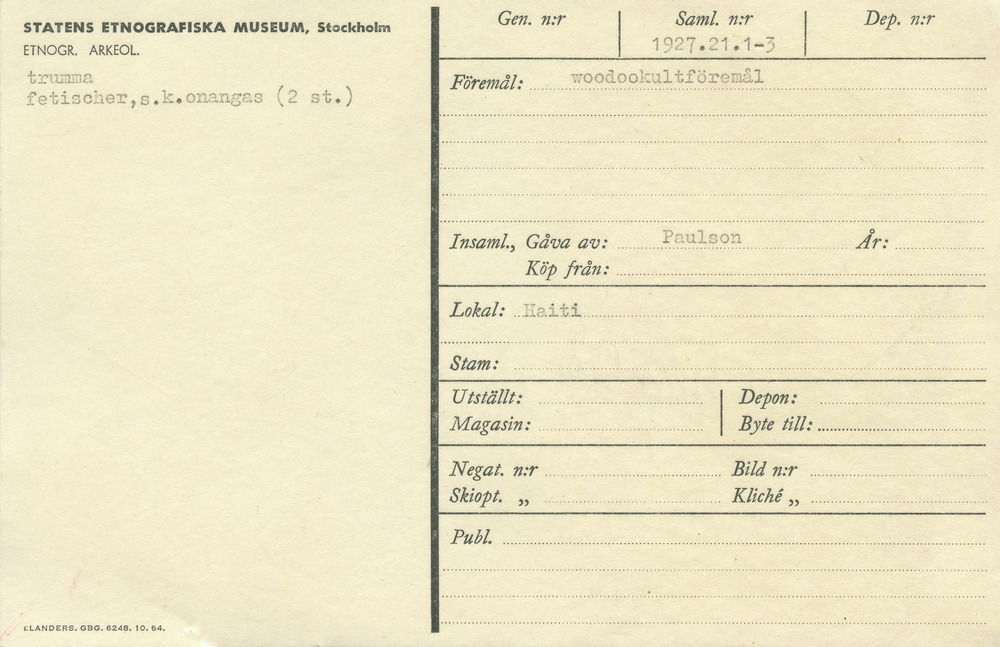 STATENS ETNOGRAFISKA MUSEUM, Stockholm
ETNOGR. ARKEOL.
trumma
fetischer,s.k.onangas (2 st.)
ELANDERS. GBG. 6248. 10. 64.
Gen. n:r
Saml. n:r
1927.21.1-3
Dep. n:r
Föremål: woodookultföremål
Insaml., Gåva av: Paulson År:
Köp från:
Lokal: Haiti
Stam:
Utställt: Depon:
Magasin: Byte till:
Negat. n:r Bild n:r
Skiopt. „ Kliché „
Publ.